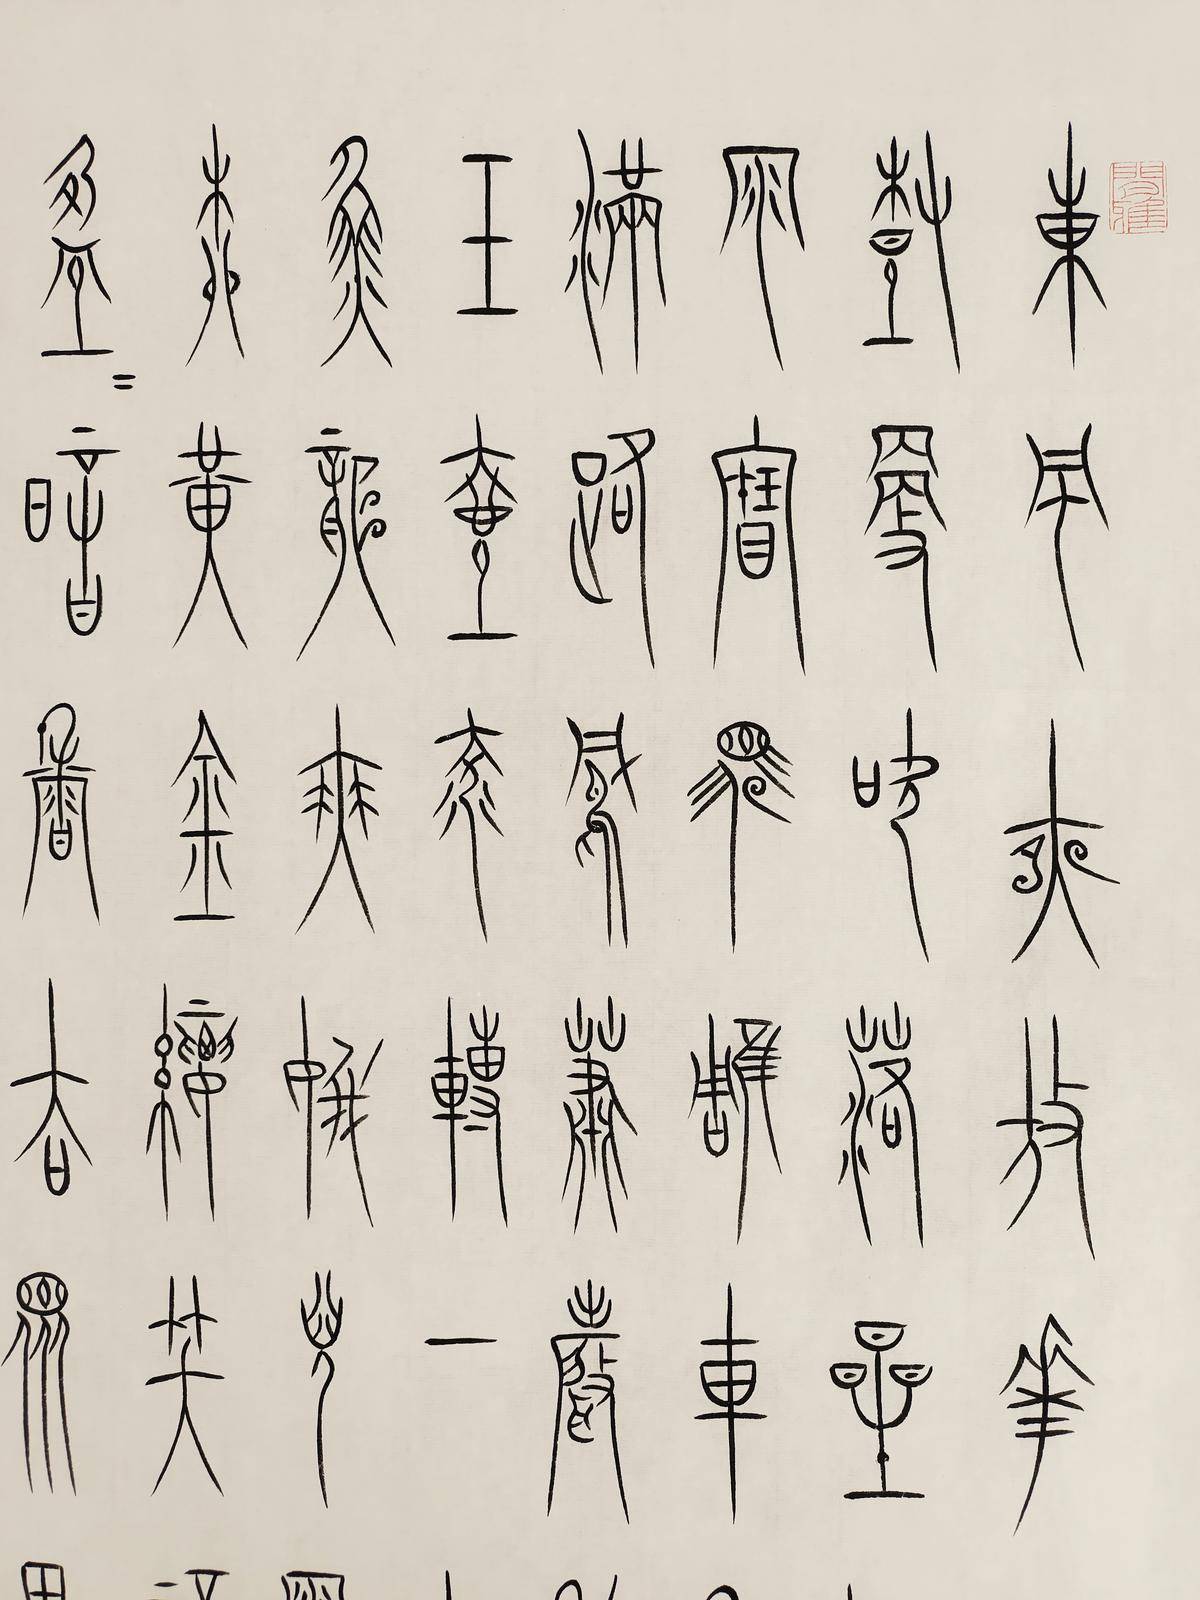 東風夜放花
樹更吹落星
雨寶馬雕車
滿路鳳簫聲
玉壺光轉一
魚龍舞蛾兒
柳黃金縷笑
盈=暗香去眾